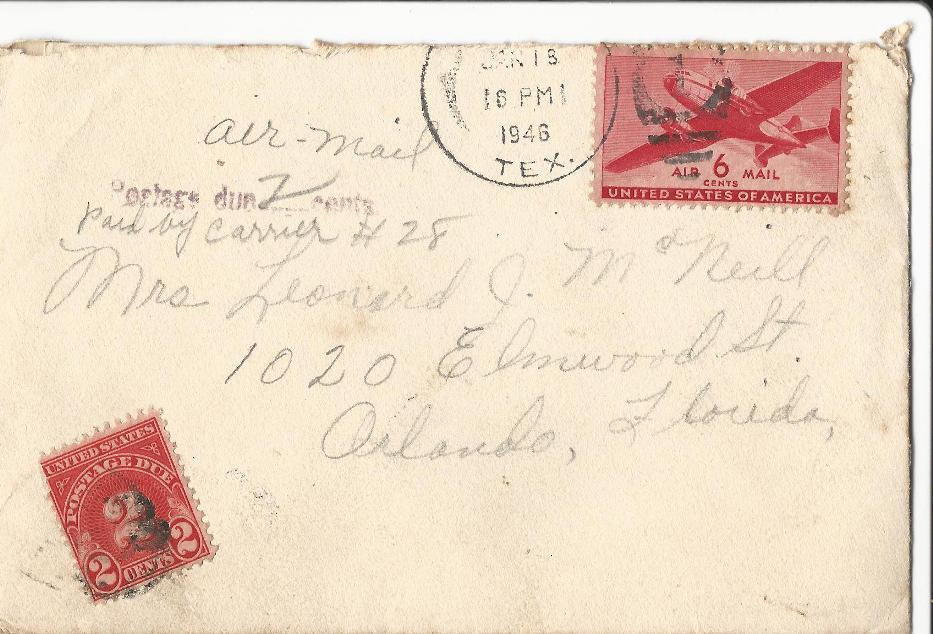 JAN 18
6 PM
1946
TEX.
AIR 6 MAIL
CENTS
UNITED STATES OF AMERICA
air-mail
Postage due 2 cents
Paid by carrier # 28
Mrs Leonard J. McNeill
1020 Elmwood St.
Orlando, Florida,
UNITED STATES
POSTAGE DUE
2
2 CENTS 2